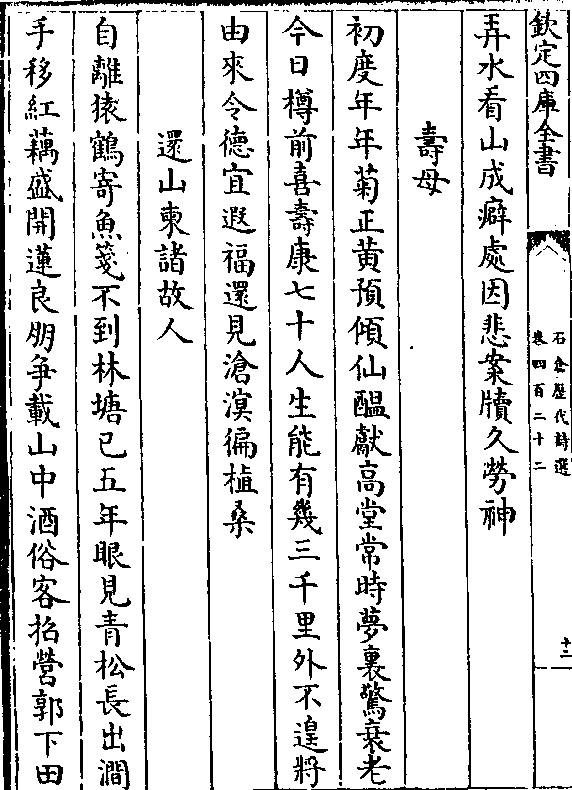 欽定四庫全書
石倉歷代詩選
卷四百二十二
十二
弄水看山成癖處因悲案牘久勞神
壽母
初度年年菊正黃預傾仙醞獻高堂常時夢裏驚衰老
今日樽前喜壽康七十人生能有幾三千里外不遑將
由來令德宜遐福還見滄溟徧植桑
還山柬諸故人
自離猿鶴寄魚箋不到林塘已五年眼見青松長出澗
手移紅藕盛開蓮良朋爭載山中酒俗客招營郭下田